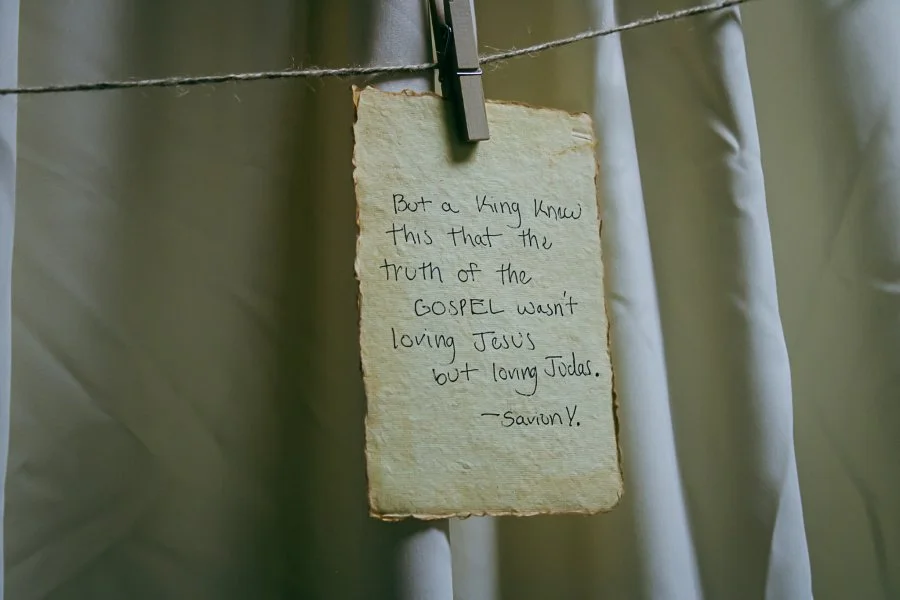 But a King Knew
this that the
truth of the
GOSPEL wasn't
loving Jesus
but loving Judas.
-Savion Y.